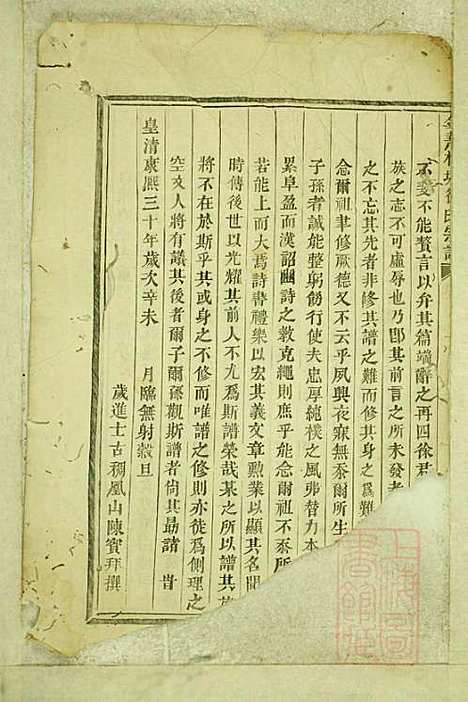 不文不能贅言以弁其篇端辭之再四徐君
族之志不可虛辱也乃即其前言之所未發者
之不忘其先者非修其譜之難而修其身之為難
念爾祖聿修厥德又不云乎夙興夜寐無忝爾所生
子孫者誠能整躬飭行使夫忠厚純樸之風弗替乃本
累阜盈而漢詔豳詩之敦克繩則庶乎能念爾祖不忝所
若能上而大焉詩書禮樂以宏其義文章勲業以顯其名聞
時傳後世以光耀其前人不尤為斯譜榮哉某之所以譜其
將不在於斯乎其或身之不修而唯譜之修則亦徒為側理之
空文人將有議其後者爾子爾孫觀斯譜者尚其勗諸 旹
皇清康熙三十年歲次辛未 月臨無射穀旦
歲進士古稠鳳山陳實拜撰
氏宗譜